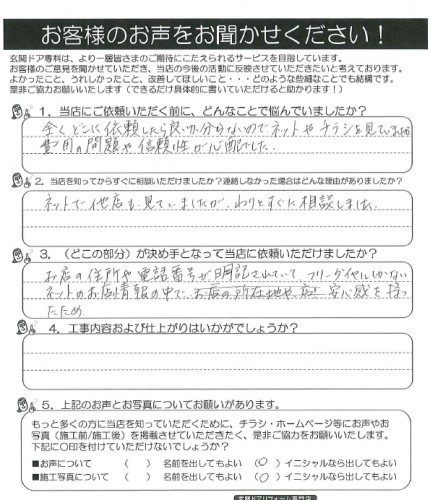 お客様のお声をお聞かせください！
玄関ドア専科は、より一層皆さまのご期待にこたえられるサービスを目指しています。
お客様のご意見を聞かせていただき、当店の今後の活動に反映させていただきたいと考えております。
よかったこと、うれしかったこと、改善してほしいこと・・・どのような些細なことでも結構です。
是非ご協力お願いします（できるだけ具体的に書いていただけると助かります！）
1．当店にご依頼いただく前に、どんなことで悩んでいましたか？
全くどこに依頼したら良いか分からないのでネットやチラシを見ていました
費用の問題や信頼性が心配でした。
2．当店を知ってからすぐに相談いただけましたか？連絡しなかった場合はどんな理由がありましたか？
ネットで他店も見ていましたが、わりとすぐに相談しました。
3．（どこの部分）が決め手となって当店に依頼いただけましたか？
お店の住所や電話番号が明記されていて、フリーダイヤルしかない
ネットのお店情報の中で、お店の所在地や 安心感を持っ
たため
4．工事内容および仕上がりはいかがでしょうか？
5．上記のお声とお写真についてお願いがあります。
もっと多くの方に当店を知っていただくために、チラシ・ホームページ等にお声やお
写真（施工前/施工後）を掲載させていただきたく、是非ご協力をお願いいたします。
下記に〇印を付けていただけないでしょうか？
■お声について （ ） 名前を出してもよい （〇） イニシャルなら出してもよい
■施工写真について （ ） 名前を出してもよい （〇） イニシャルなら出してもよい
玄関ドアリフォーム専門店